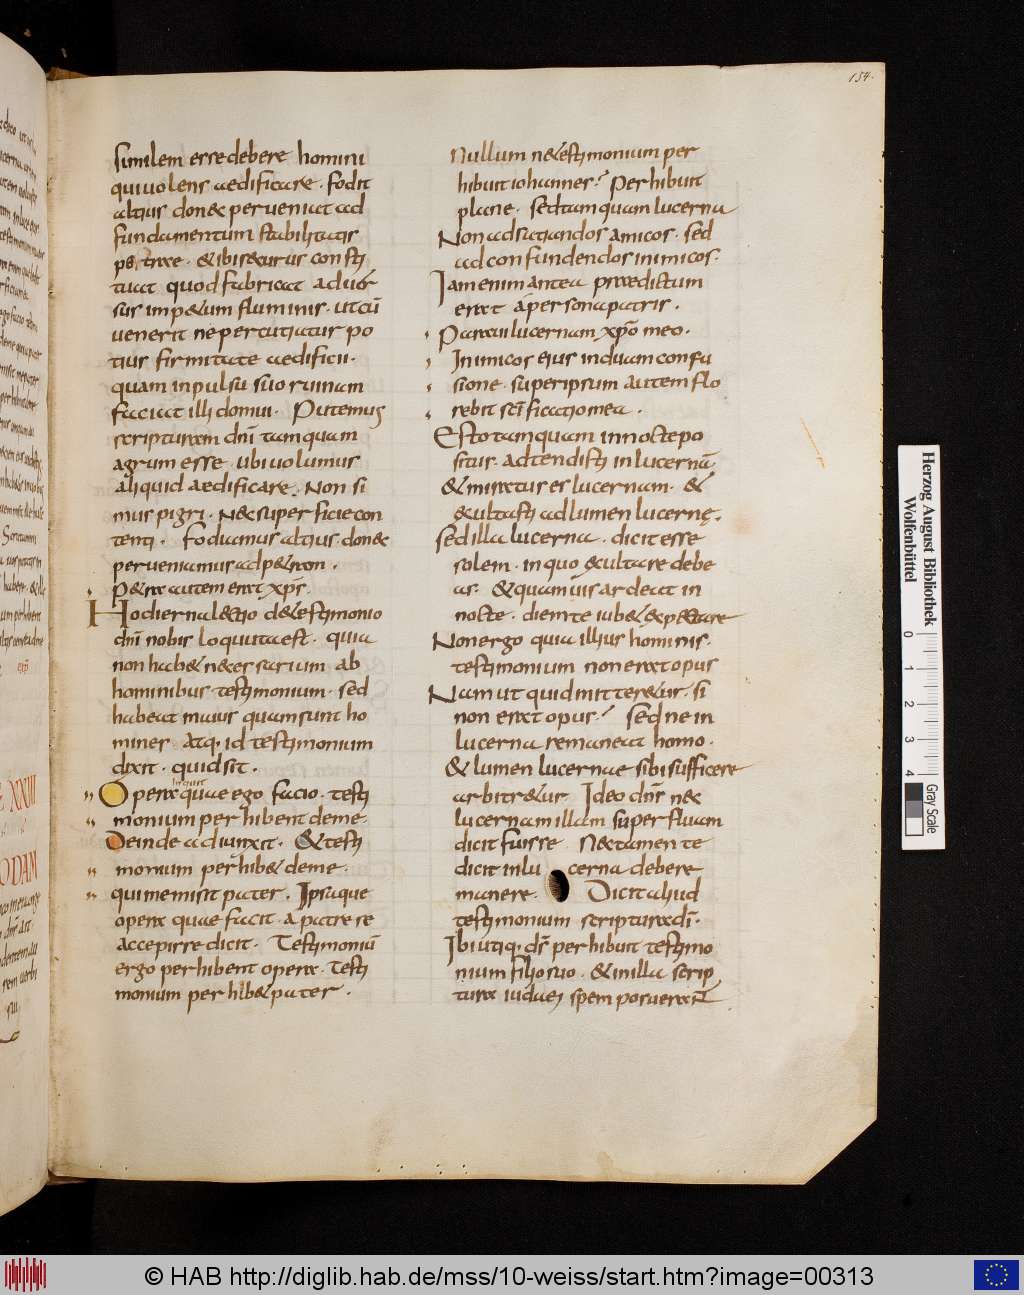 154.
similem esse debere homini
qui uolens aedificare · fodit
altius donec perueniat ad
fundamentum stabilitatis
petrae · & ibi securus constī
tuat quod fabricat aduer
sus imp&um fluminis · ut cū
uenerit ne percutiatur po
tius firmitate aedificii ·
quam inpulsu suo ruinam
faciat illi domui · Putemus
scripturam dnī tamquam
agrum esse · ubi uolumus
aliquid aedificare · Non si
mus pigri · Nec superficie con
tenti · Fodiamus altius · donec
perueniamus ad p&ram ·
P&ra autem erat xp̄s ·
Hodierna lectio de testimonio
dnī nobis loquuta est · quia
non hab& necessarium ab
hominibus testimonium · sed
habeat maius quam sunt ho
mines · Atq· id testimonium
dixit · quid sit ·
Opera inquit quae ego facio · testi
monium perhibent de me
Deinde adiunxit · & testi
monium perhib& de me ·
qui me misit pater · Ipsa que
opera quae facit · a patre se
accepisse dicit · Testimoniū
ergo perhibent opera · Testi
monium perhib& pater ·
Nullum ne testimonium per
hibuit iohannes? Perhibuit
plane · sed tamquam lucerna
Non ad satiandos amicos · sed
ad confundendos inimicos ·
Iam enim antea praedictum
erat a persona patris ·
Paraui lucernam xp̄o meo ·
Inimicos eius induam confu
sione · super ipsum autem flo
rebit scīficatio mea ·
Esto tamquam in nocte po
situs · adtendisti in lucernā
& miratus es lucernam · &
exultasti ad lumen lucernę ·
Sed illa lucerna · dicit esse
solem · in quo exultare debe
as · & quamuis ardeat in
nocte · diem te iub& expectare
Non ergo quia illius hominis ·
testimonium non erat opus
Nam ut quid mitteretur · si
non erat opus? Sed ne in
lucerna remaneat homo ·
& lumen lucernae sibi sufficere
arbitr&ur · Ideo dn̄s nec
lucernam illam superfluam
dicit fuisse Nec tamen te
dicit in lucerna debere
manere · Dicit aliud
testimonium scriptura dī ·
Ibi utiq· ds̄ perhibuit testimo
nium filio suo · & in illa scrip
tura iudaei spem posuerant
Herzog August Bibliothek
Wolfenbüttel
0 1 2 3 4
Gray Scale
© HAB http://diglib.hab.de/mss/10-weiss/start.htm?image=00313